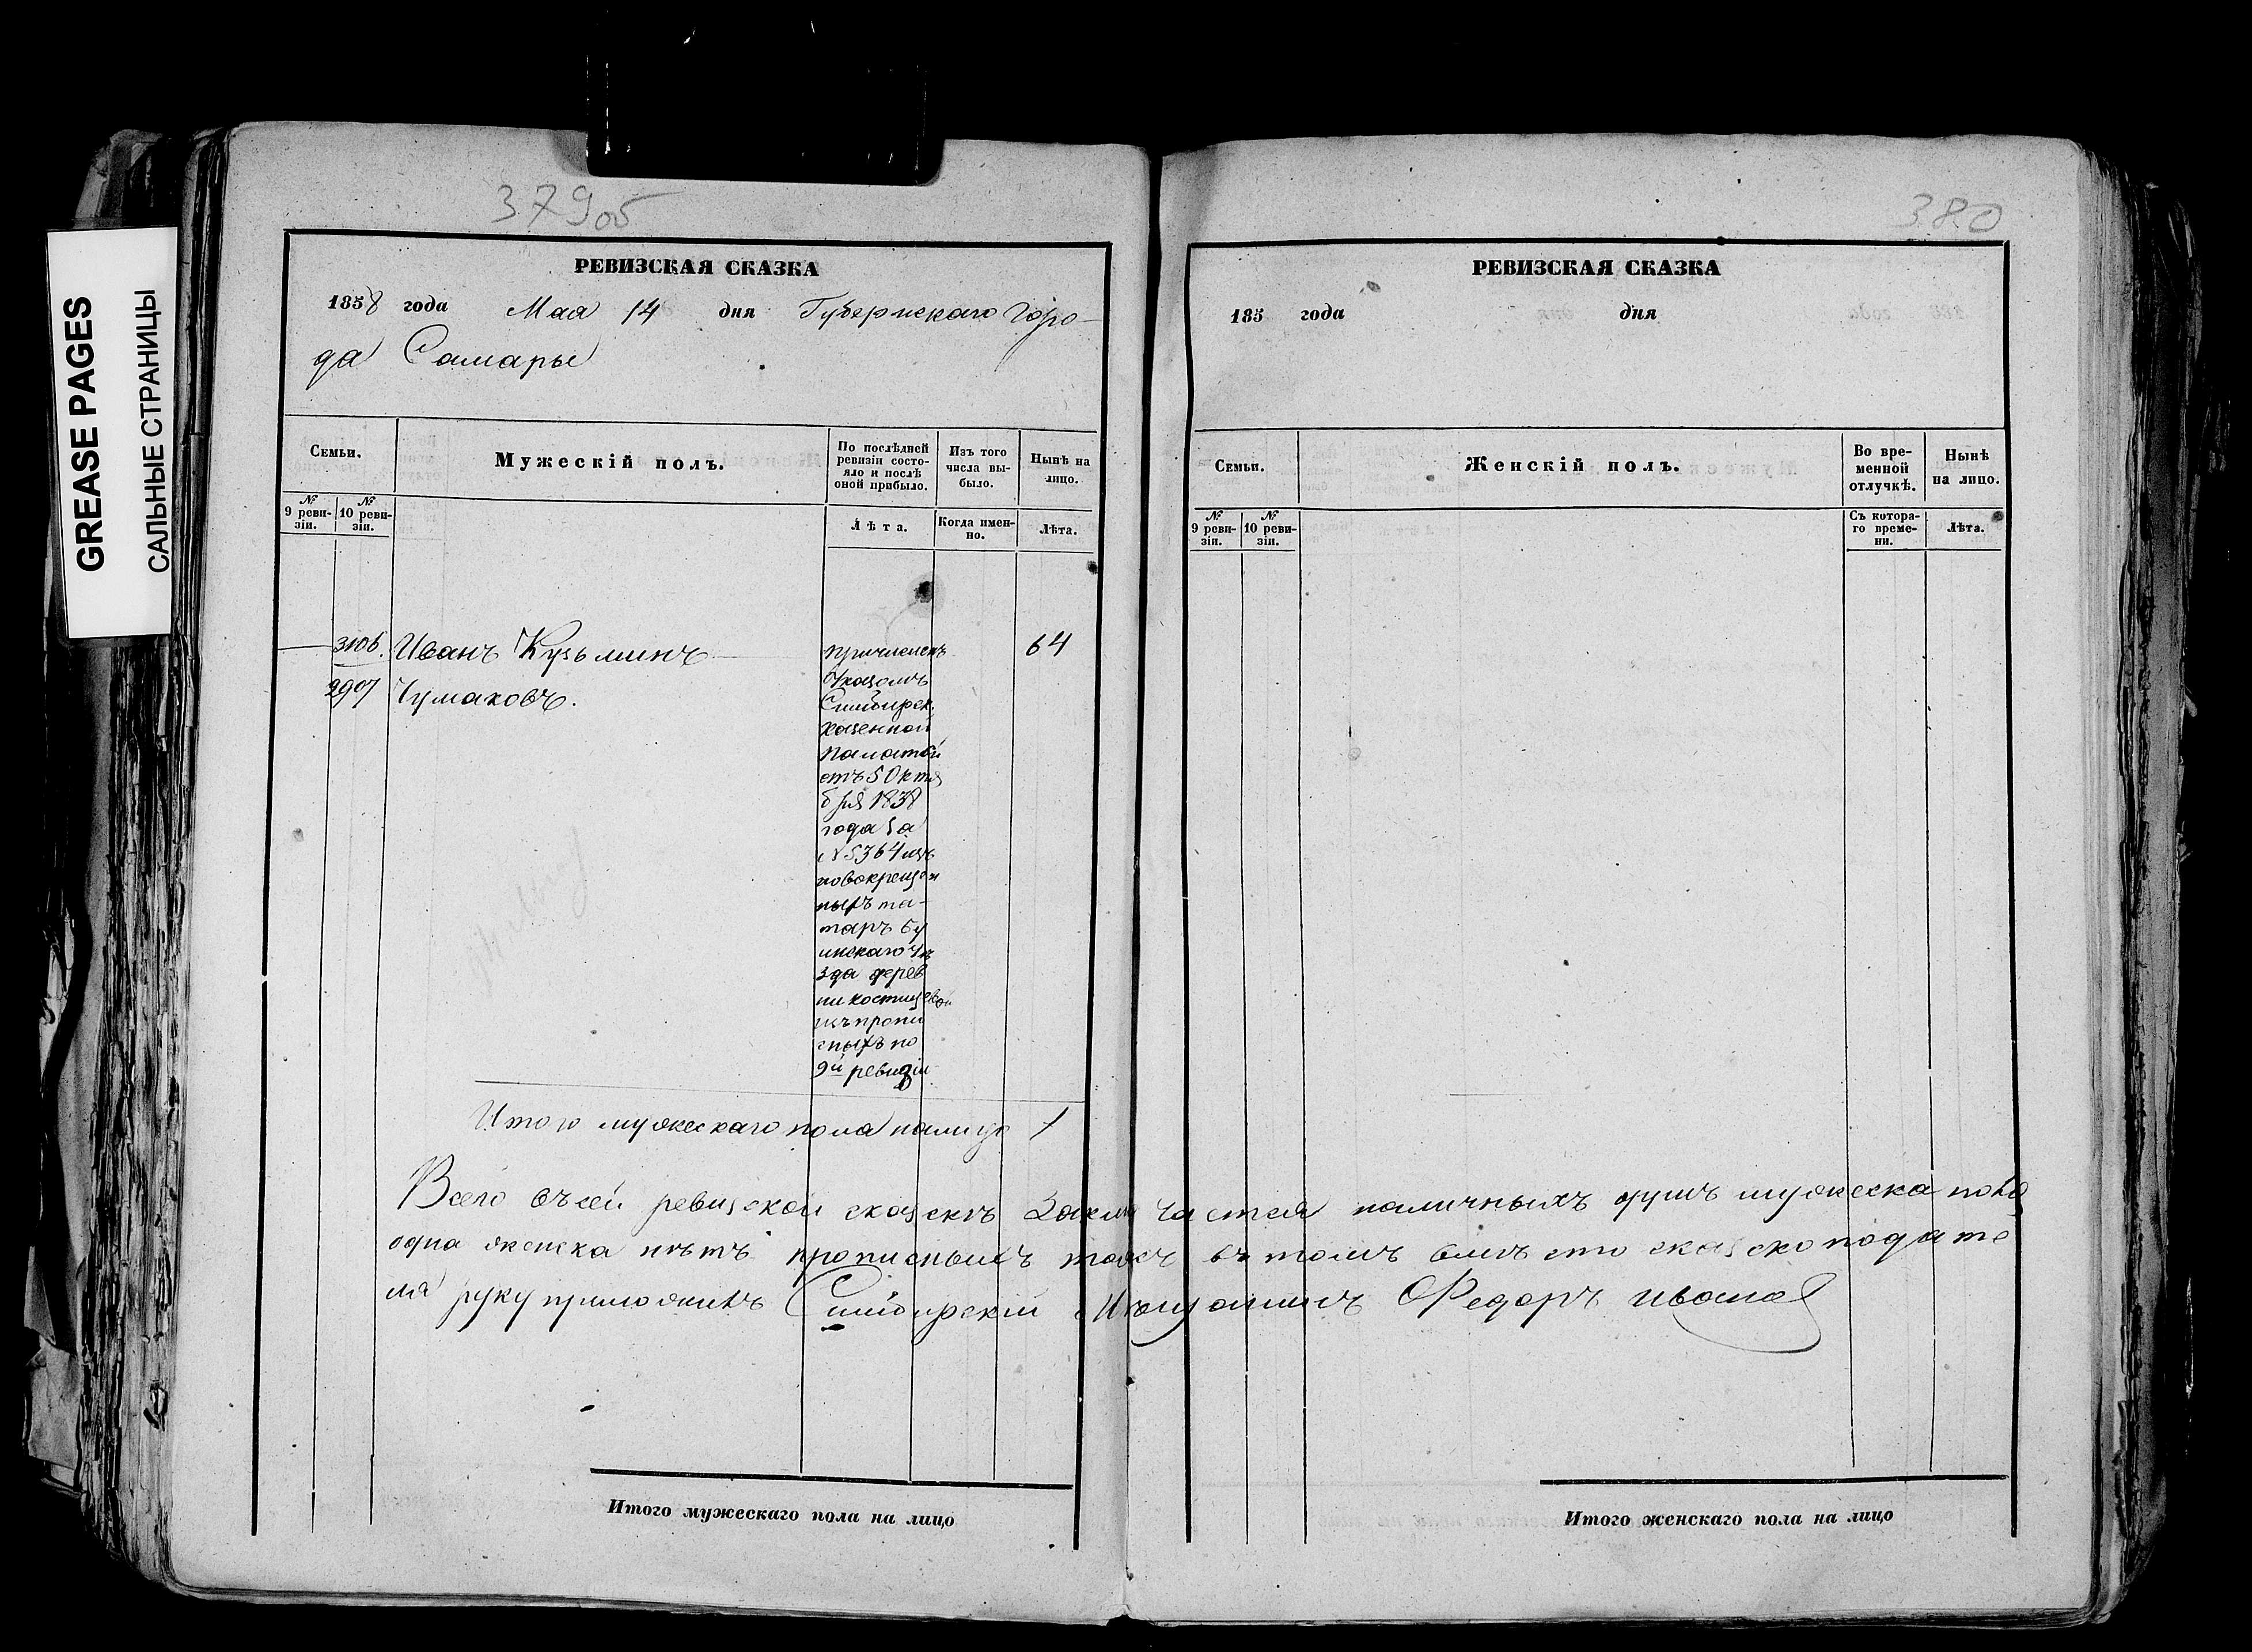 GREASE PAGES
САЛЬНЫЕ СТРАНИЦЫ
379об
РЕВИЗСКАЯ СКАЗКА
1858 года Мая 14 дня Губернскаго Горо-
да Самары
Семьи.
Мужескій полъ.
По послѣдней
ревизіи состо-
яло и послѣ
оной прибыло.
Изъ того
числа вы-
было.
Нынѣ на
лицо.
№
9 реви-
зіи.
№
10 реви-
зіи.
Лѣта.
Когда имен-
но.
Лѣта.
3106. Иванъ Кузьминъ
2907 Чумаковъ.
причисленъ
Указомъ
Симбирск.
казенной
Палатой
отъ 5 Октя
бря 1838
года за
№ 5364 изъ
новокрещон
ныхъ та-
таръ Бу
инскаго Уѣ
зда дерев
ни
изъ пропи
сныхъ по
9й ревизіи
64
Итого мужескаго пола налицо 1
Всего въ сей ревизской сказкѣ Заключается наличныхъ душъ мужеска пола
одна женска нѣтъ прописныхъ тожъ въ томъ сказко подате
ля руку приложилъ Симбирскій Мѣщанинъ Федоръ Иванов
Итого мужескаго пола на лицо
380
РЕВИЗСКАЯ СКАЗКА
185 года дня
Семьи.
Женскій полъ.
Во вре-
менной
отлучкѣ.
Нынѣ
на лицо.
№
9 реви-
зіи.
№
10 реви-
зіи.
Съ котора-
го време-
ни.
Лѣта.
Итого женскаго пола на лицо